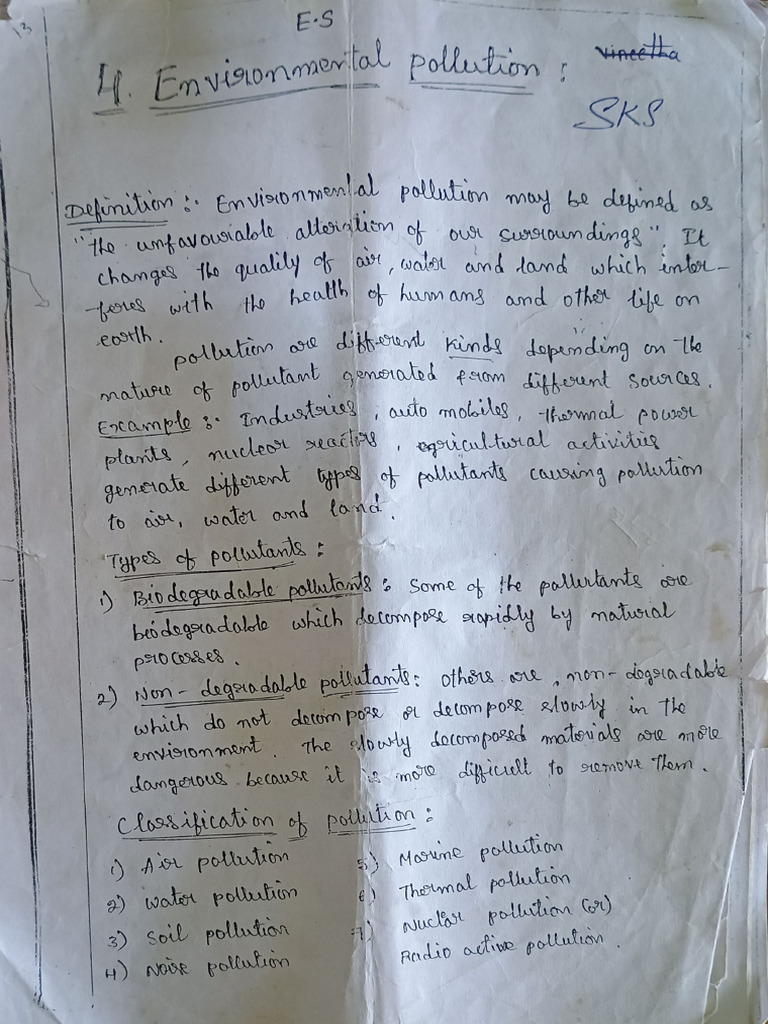 13
E.S
4. Environmental pollution :
vineetha
SKS
Definition :- Environmental pollution may be defined as
"The unfavourable alteration of our surroundings". It
changes the quality of air, water and land which inter-
feres with the health of humans and other life on
earth.
pollution are different kinds depending on the
nature of pollutant generated from different sources.
Example :- Industries, auto mobiles, thermal power
plants, nuclear reactors, agricultural activities
generate different types of pollutants causing pollution
to air, water and land.
Types of pollutants :
1) Biodegradable pollutants : Some of the pollutants are
biodegradable which decompose rapidly by natural
processes.
2) Non-degradable pollutants : others are, non-degradable
which do not decompose or decompose slowly in the
environment. The slowly decomposed materials are more
dangerous because it is more difficult to remove them.
Classification of pollution :
1) Air pollution
2) water pollution
3) soil pollution
4) Noise pollution
5) Marine pollution
6) Thermal pollution
7) Nuclar pollution (or)
Radio active pollution.